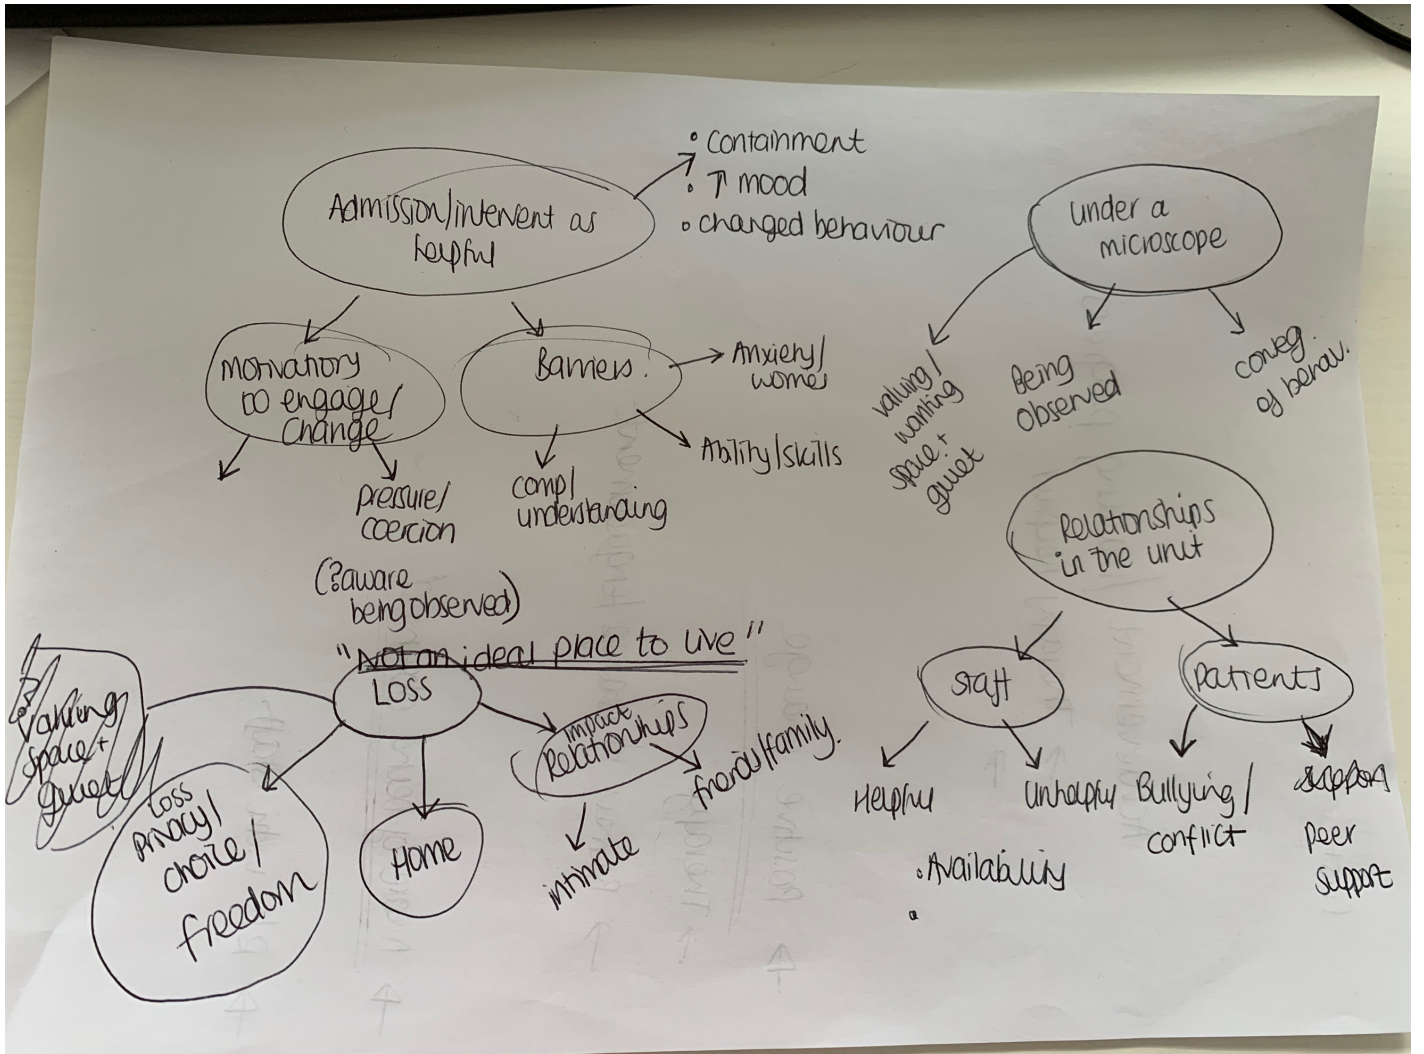 Admission/intervent as
helpful
• containment
• ↑ mood
• changed behaviour
Motivation
to engage/
change
pressure/
coercion
(?aware
being observed)
Barriers.
Anxiety/
Ability/skills
comp/
understanding
under a
microscope
valuing/
wanting
space +
quiet
Being
observed
conseq.
of behav.
Relationships
in the unit
Staff
Helpful
Unhelpful
• Availability
•
Patients
Bullying/
conflict
support
peer
support
"Not an ideal place to live"
LOSS
space +
quiet
Loss
privacy/
choice/
freedom
Home
impact
Relationships
friends/family.
intimate